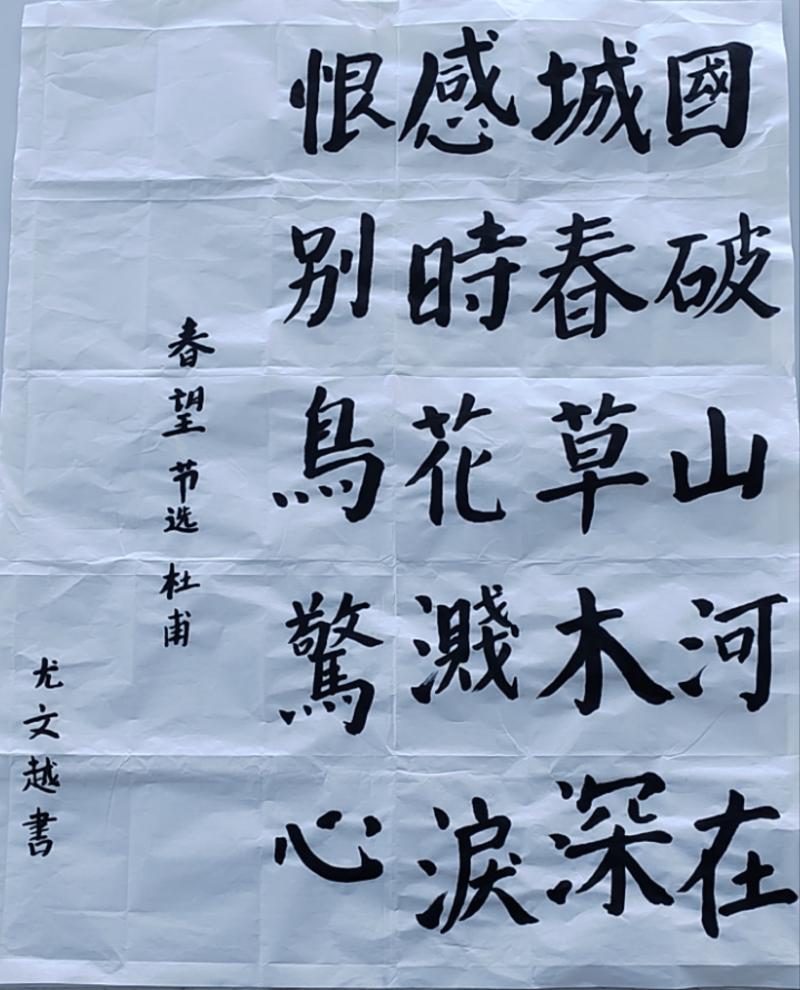 國破山河在
城春草木深
感時花濺淚
恨别鳥驚心
春望节选杜甫
尤文越書